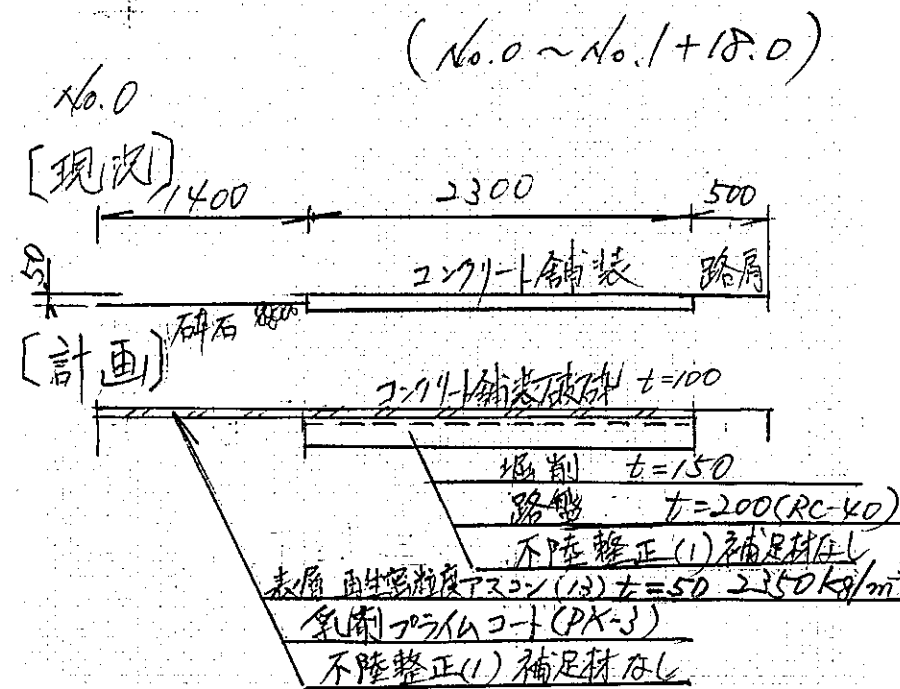 (No.0 ~ No.1+18.0)
No.0
[現況]
1400 2300 500
50
コンクリート舗装 路肩
砕石
[計画]
コンクリート舗装破砕 t=100
堀削 t=150
路盤 t=200(RC-40)
不陸整正(1)補足材なし
表層 再生密粒度アスコン(13) t=50 2350kg/m³
乳剤プライムコート(PK-3)
不陸整正(1)補足材なし